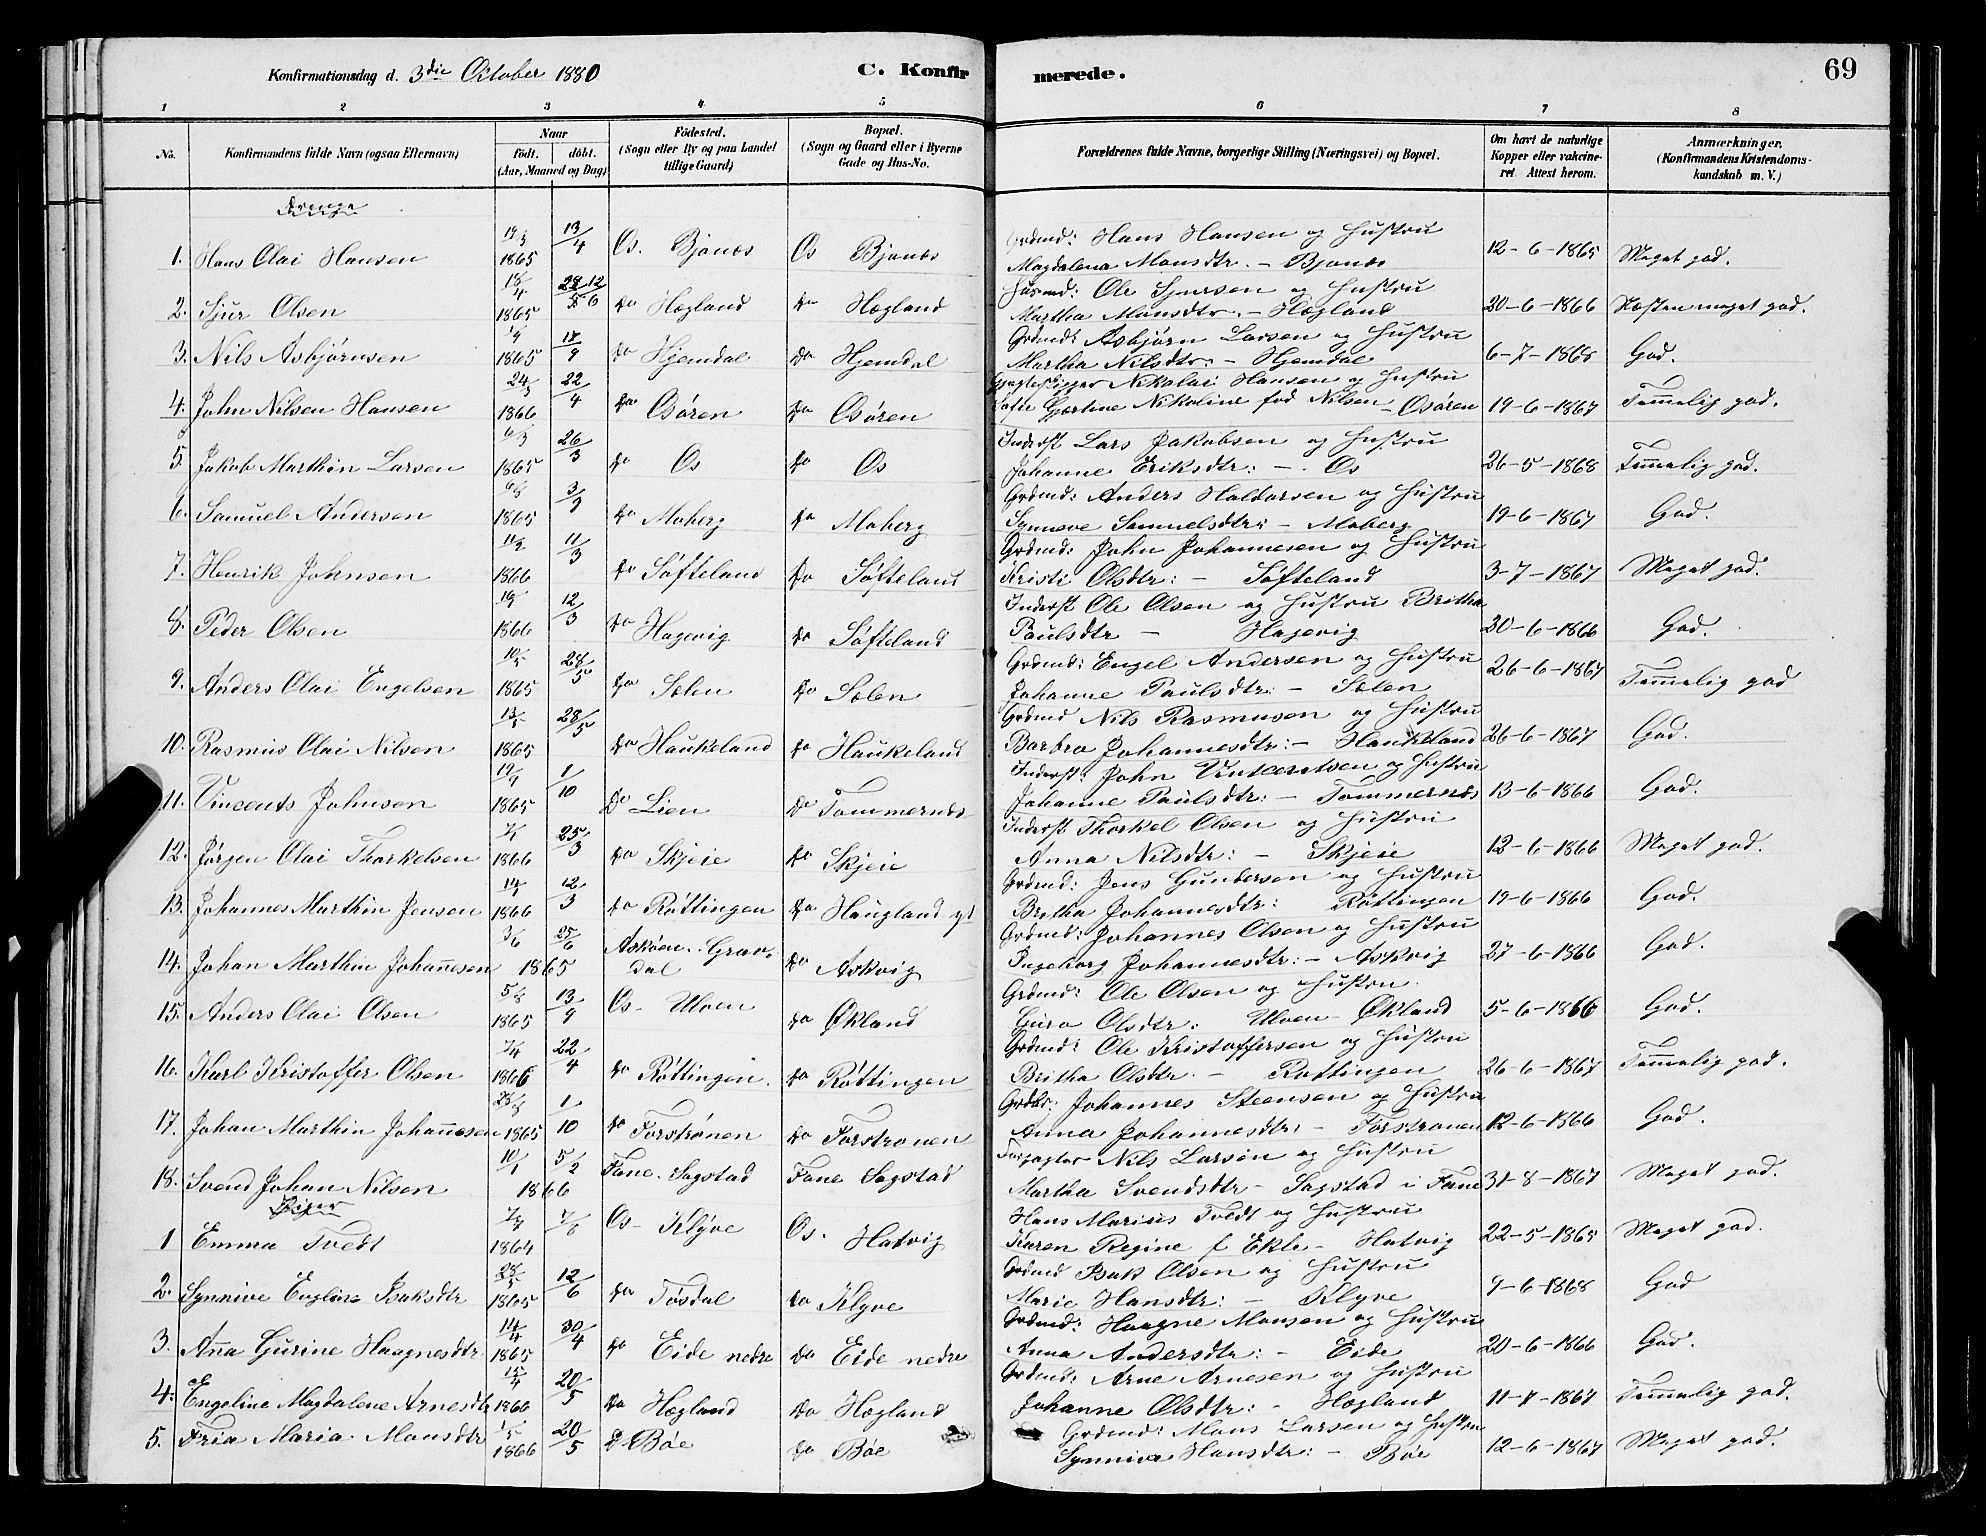 Konfirmationsdag d. 3die October 1880 C. Konfirmerede. 69
1 2 3 4 5 6 7 8
No. Konfirmandens fulde Navn (ogsaa Efternavn) Naar født. døbt. (Aar, Maaned og Dag) Fødested. (Sogn eller By og paa Landet tillige Gaard) Bopæl. (Sogn og Gaard eller i Byerne Gade og Hus-No. Forældrenes fulde Navne, borgerlige Stilling (Næringsvei) og Bopæl. Om havt de naturlige Kopper eller vakcineret Attest herom. Anmærkninger. (Konfirmandens Kristendomskundskab m. V.)
Drenge
1. Hans Olai Hansen 1865 13/4 Os. Bjønæs Os Bjønæs Grdmd: Hans Hansen og Hustru Magdalena Monsdtr. - Bjønæs 12-6-1865 Meget god.
2. Sjur Olsen 1865 Do Hegland Do Hegland Husmd: Ole Sjursen og Hustru Martha Monsdtr. - Hegland 20-6-1866 Næsten meget god.
3. Nils Asbjørnsen 1865 Do Hjemdal Do Hjemdal Grdmd: Asbjørn Larsen og Hustru Martha Nilsdtr: - Hjemdal 6-7-1868 God.
4. John Nilsen Hansen 24/3 1866 22/4 Do Osøren Do Osøren Nikolai Hansen og Hustru Sofie Gjertine Nikoline fød Nilsen - Osøren 19-6-1867 Temmelig god.
5. Jakob Marthin Larsen 6/3 1865 26/3 Do Os Do Os Inderst Lars Jakobsen og Hustru Johanne Eriksdtr: - Os 26-5-1868 Temmelig god.
6. Samuel Andersen 1865 3/9 Do Moberg Do Moberg Grdmd: Anders Haldorsen og Hustru Synneve Samuelsdtr: - Moberg 19-6-1867 God.
7. Henrik Johnsen 11/2 1866 11/3 Do Søfteland Do Søfteland Grdmd: John Johannesen og Hustru Kristi Olsdtr: - Søfteland 3-7-1867 Meget god.
8. Peder Olsen 1866 12/3 Do Hagevig Do Søfteland Inderst Ole Olsen og Hustru Britha Paulsdtr - Hagevig 20-6-1866 God.
9. Anders Olai Engelsen 10/5 1865 28/5 Do Sælen Do Sælen Grdmd: Engel Andersen og Hustru Johanne Paulsdtr: - Sælen 26-6-1867 Temmelig god
10. Rasmus Olai Nilsen 13/5 1865 28/5 Do Haukeland Do Haukeland Grdmd Nils Rasmusen og Hustru Barbro Johannesdtr: - Haukeland 26-6-1867 God.
11. Vincents Johnsen 19/9 1865 1/10 Do Lien Do Tømmernes Inderst: John Vincentsen og Hustru Johanne Paulsdtr: - Tømmernes 13-6-1866 God.
12. Jørgen Olai Thorkelsen 1866 25/3 Do Skjeie Do Skjeie Inderst Thorkel Olsen og Hustru Anna Nilsdtr: - Skjeie 12-6-1866 Meget god.
13. Johannes Marthin Jensen 1866 12/3 Do Røttingen Do Haugland yt Grdmd: Jens Gundersen og Hustru Britha Johannesdtr: Røttingen 19-6-1866 God.
14. Johan Marthin Johañesen 3/6 1865 25/6 Askøen. Gravdal Do Askvig Grdmd: Johannes Olsen og Hustru Ingeborg Johannesdtr: - Askvig 27-6-1866 God.
15. Anders Olai Olsen 5/8 1865 13/9 Os - Ulven Do Økland Grdmd: Ole Olsen og Hustru Guro Olsdtr: Ulven - Økland 5-6-1866 God.
16. Karl Kristoffer Olsen 7/4 1866 22/4 Do Røttingen. Do Røttingen Grdmd: Ole Kristoffersen og Hustru Britha Olsdtr. - Røttingen 26-6-1867 Temmelig god.
17. Johan Marthin Johañesen 1865 1/10 Do Forstrønen Do Forstrønen Johannes Steensen og Hustru Anna Johannesdtr: - Forstrønen 12-6-1866 God.
18. Svend Johan Nilsen 10/1 1866 5/2 Fane. Sagstad Fane Sagstad Forpagter Nils Larsen og Hustru Martha Svendsdtr - Sagstad i Fane 31-8-1867 Meget god.
Piger
1 Emma Tvedt 1864 7/8 Os - Klyve Os. Hatvig Hans Marius Tvedt og Hustru Karen Regine f Ekle - Hatvig 22-5-1865 Meget god.
2. Synnive Engline Isaksdtr 28/5 1865 12/6 Do Tøsdal Do Klyve Grdmd Isak Olsen og Hustru Marie Hansdtr: - Klyve 9-6-1868 God
3. Aña Gurine Haagnesdtr 14/4 1865 30/4 Do Eide nedre Do Eide nedre Grdmd: Haagne Monsen og Hustru Anna Andersdtr: - Eide 20-6-1866 God.
4. Engeline Magdalene Arnesdtr 1866 20/5 Do Hegland Do Hegland Grdmd: Arne Arnesen og Hustru Johanne Olsdtr: - Hegland 11-7-1867 Temmelig god.
5. Fria Maria Monsdtr 1/5 1866 20/5 Do Bøe Do Bøe Grdmd: Mons Larsen og Hustru Synnive Hansdtr: - Bøe 12-6-1867 Meget god.